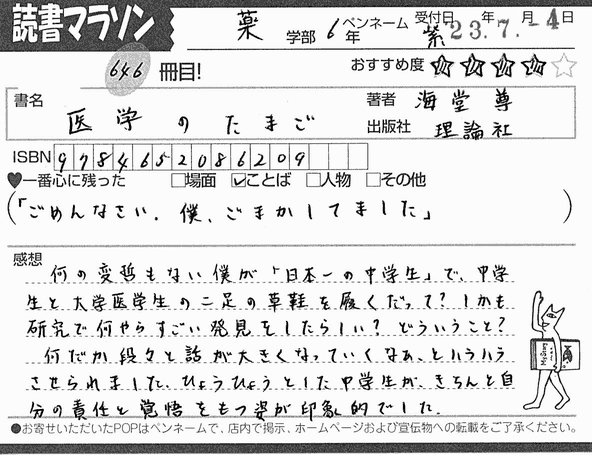 読書マラソン
薬 学部 6年 ペンネーム 紫 受付日 23年7月-4日
646 冊目! おすすめ度 ★★★★☆
書名 医学のたまご 著者 海堂尊
出版社 理論社
ISBN 9784652086209
♥一番心に残った □場面 ☑ことば □人物 □その他
(「ごめんなさい。僕、ごまかしてました」)
感想
何の変哲もない僕が「日本一の中学生」で、中学
生と大学医学生の二足の草鞋を履くだって?しかも
研究で何やらすごい発見をしたらしい?どういうこと?
何だか段々と話が大きくなっていくなぁ、とハラハラ
させられました。ひょうひょうとした中学生が、きちんと自
分の責任と覚悟をもつ姿が印象的でした。
●お寄せいただいたPOPはペンネームで、店内で掲示、ホームページおよび宣伝物への転載をご了承ください。